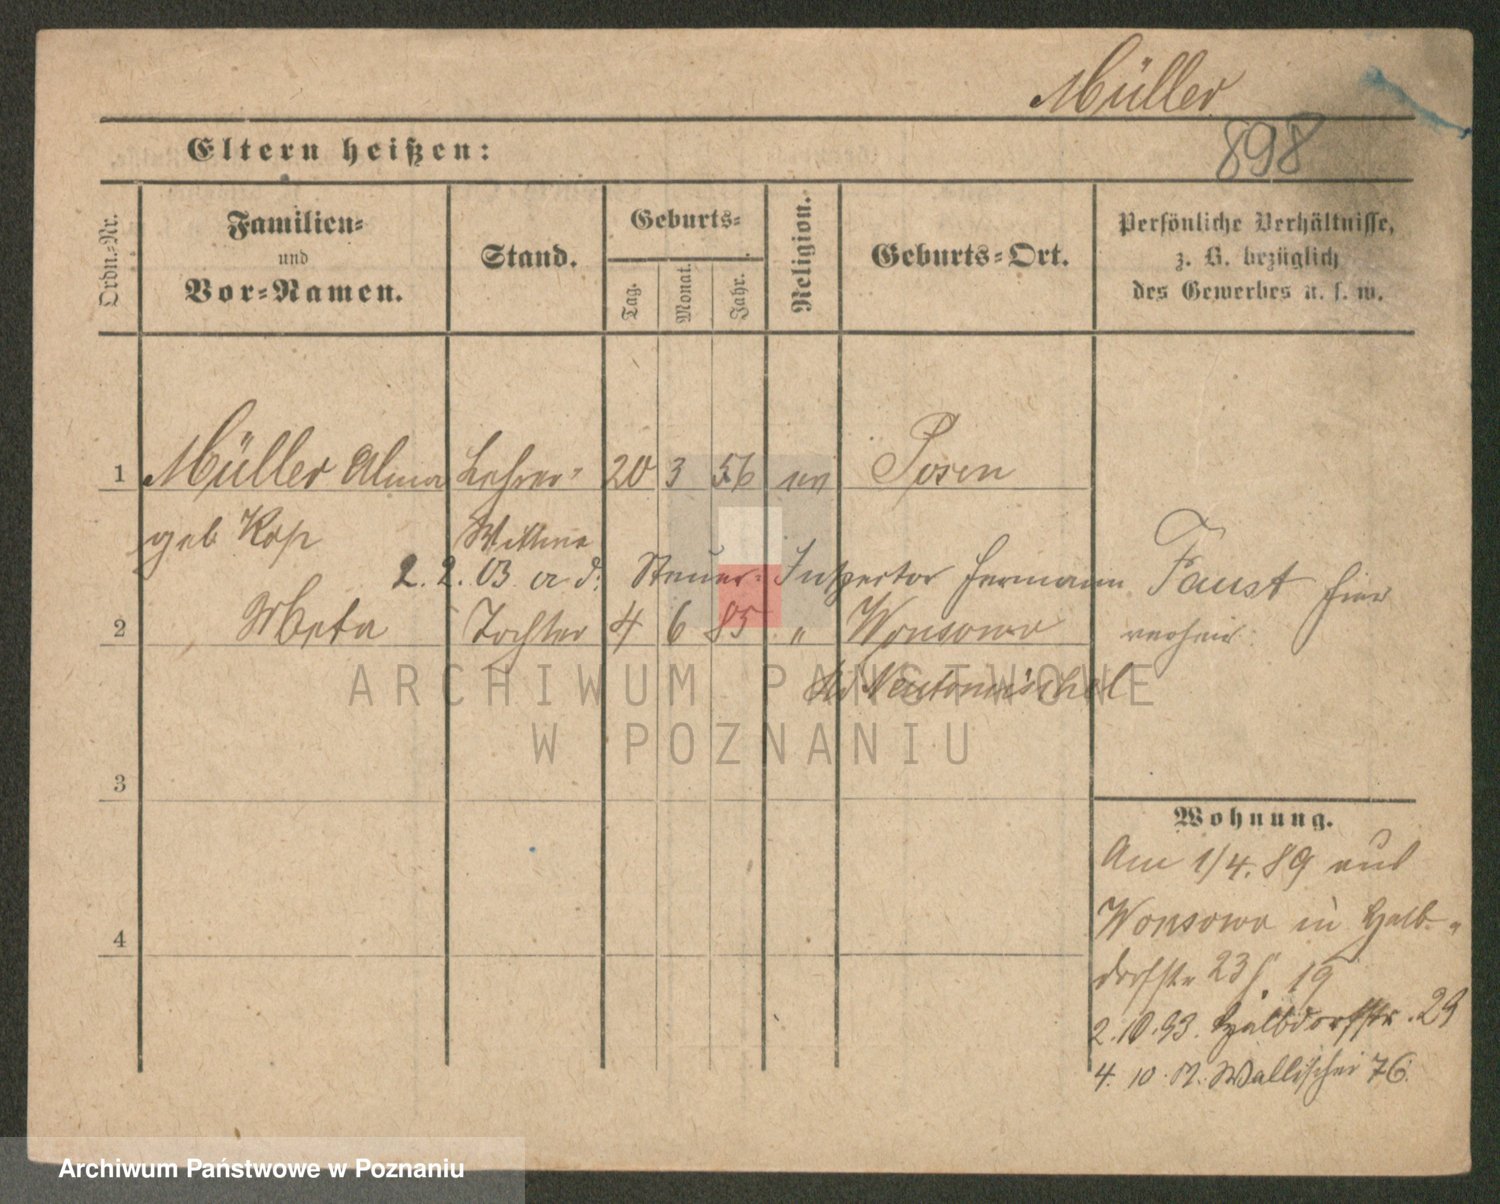 Müller
898
Eltern heißen:
Ordn.-Nr.
Familien- und Vor-Namen.
Stand.
Geburts-
Tag.
Monat.
Jahr.
Religion.
Geburts-Ort.
Persönliche Verhältnisse,
z. B. bezüglich
des Gewerbes u. s. w.
1 Müller Alma Lehrer- 20 3 56 ev Posen
geb Kop Wittwe
2. 2. 03 a d: Steuer-Inspector Hermann Faust hier
2 Meta Tochter 4 6 85 " Wonsowo verheir.
Neutomischel
3
4
Wohnung.
Am 1/4. 89 aus
Wonsowo in Halb-
dorfstr 23 19
2.10.93. Halbdorfstr. 29
4. 10. 01. Wallischei 76.
ARCHIWUM PAŃSTWOWE
W POZNANIU
Archiwum Państwowe w Poznaniu